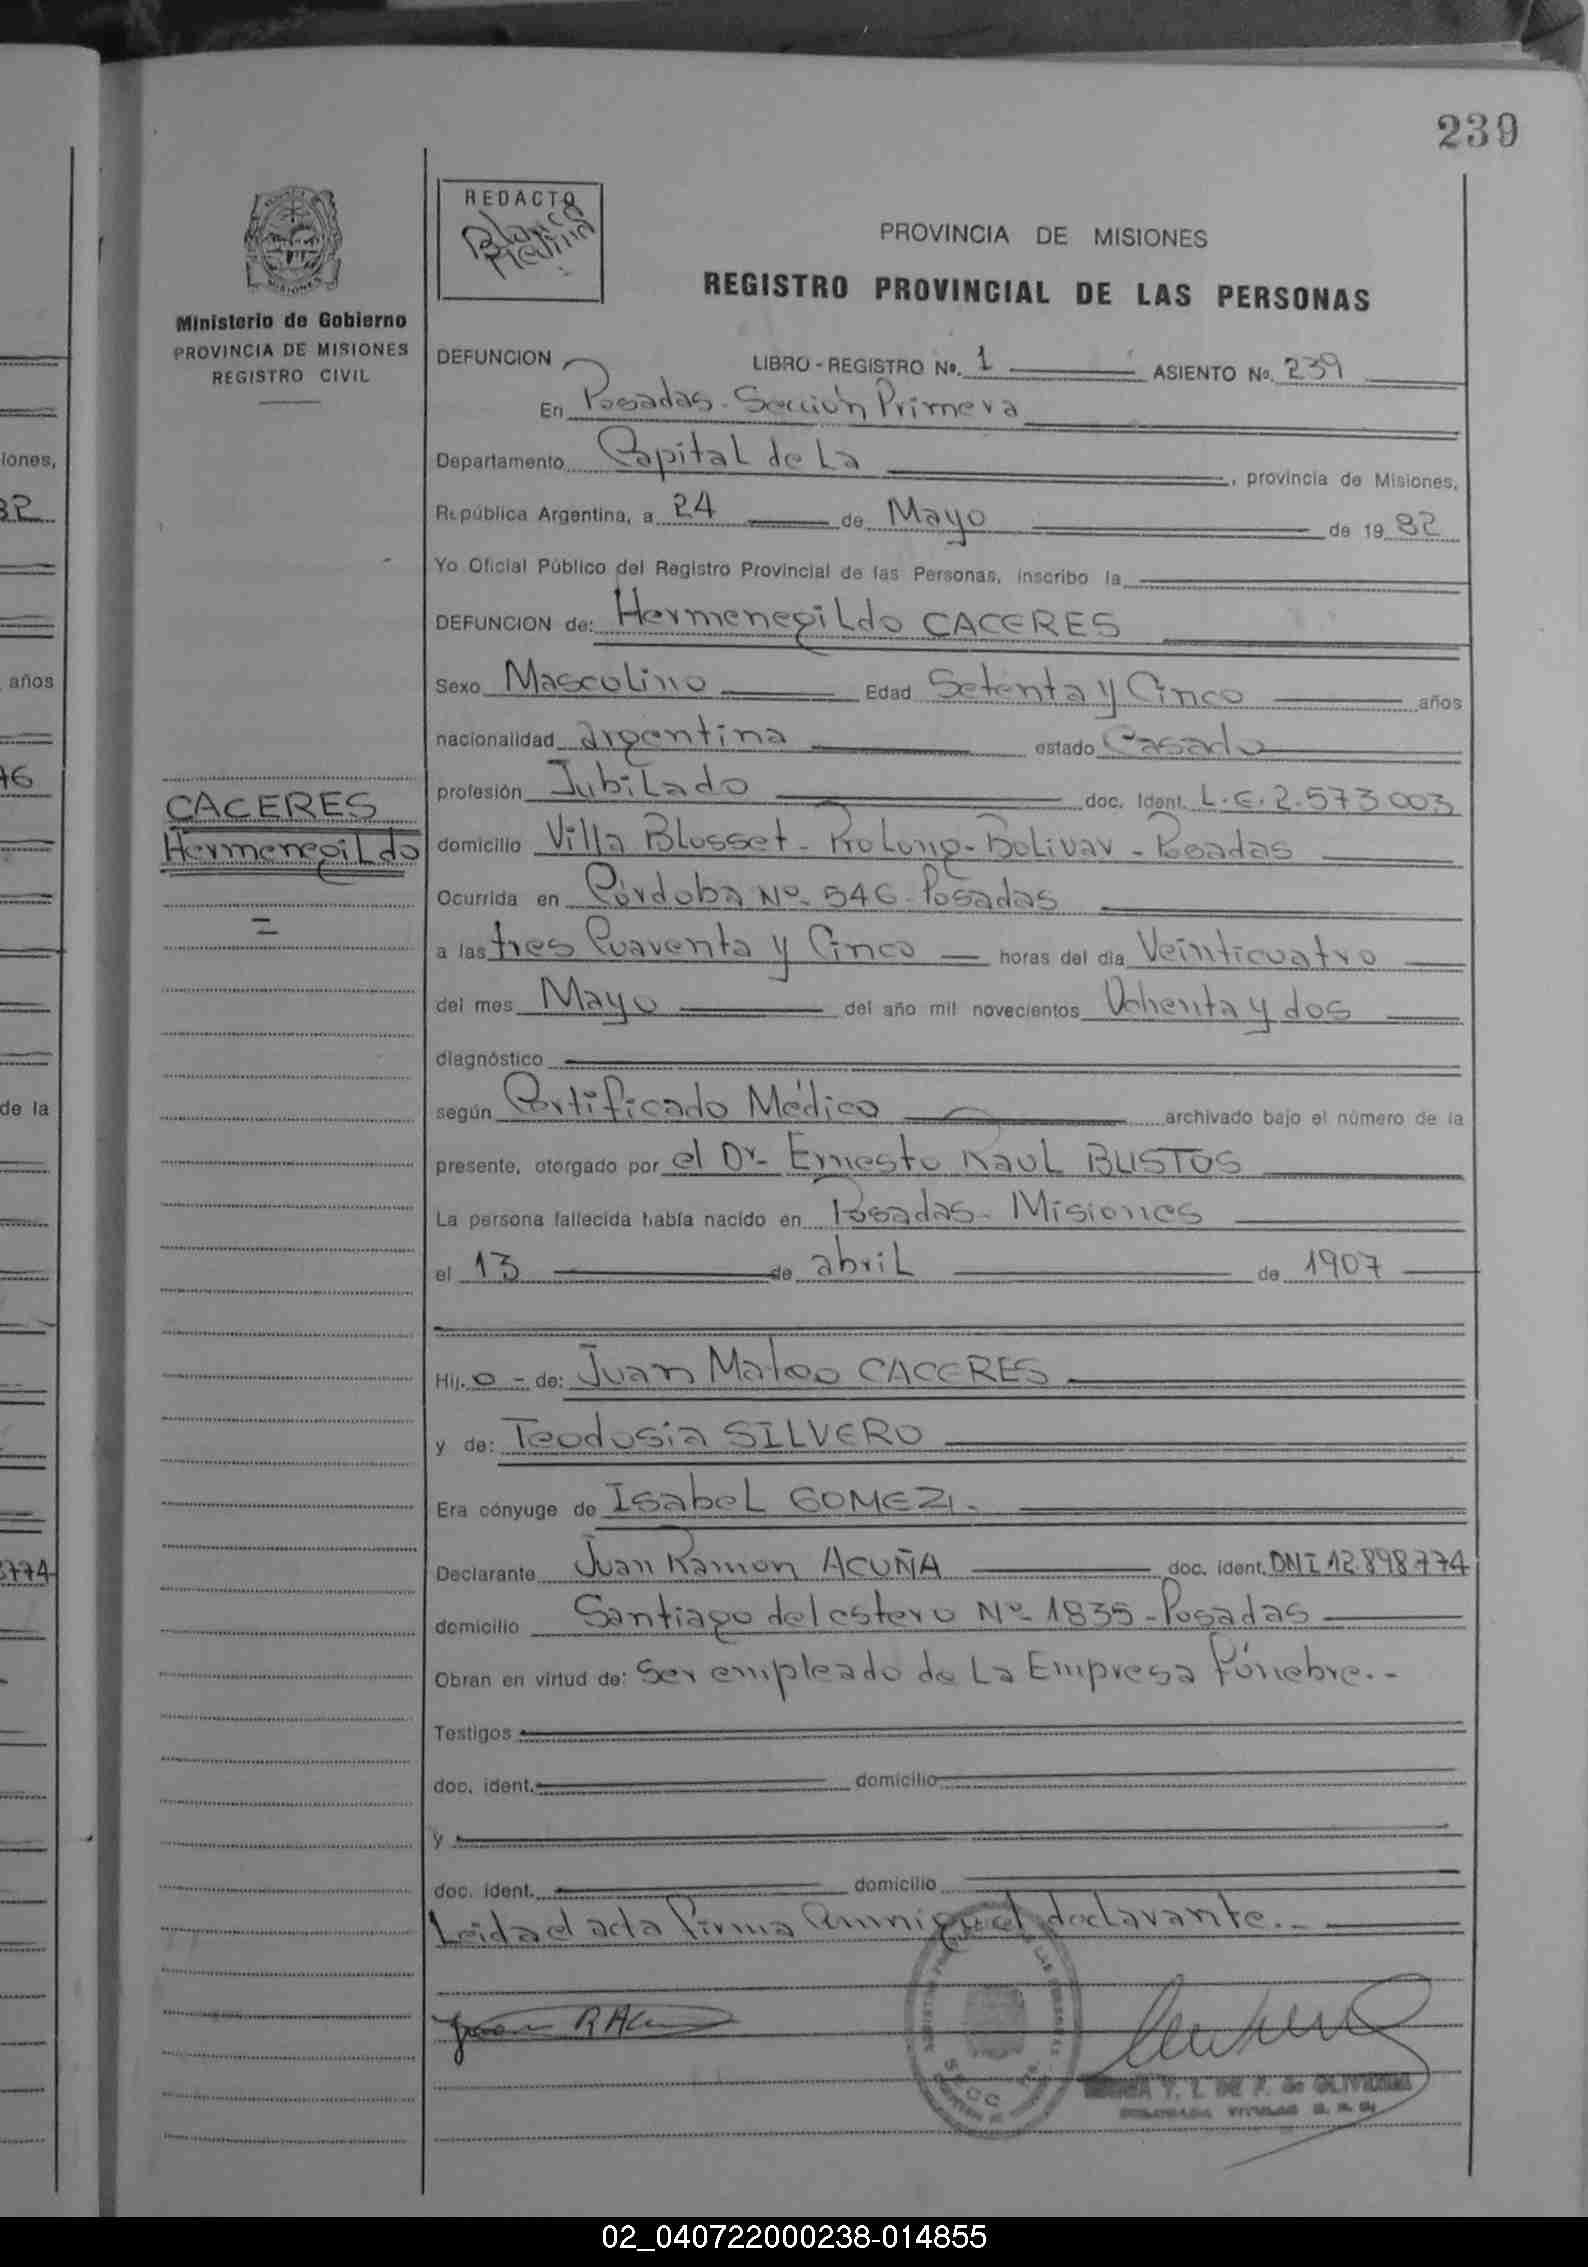 239
REDACTO
Blanca
Medina
PROVINCIA DE MISIONES
REGISTRO PROVINCIAL DE LAS PERSONAS
MISIONES
Ministerio de Gobierno
PROVINCIA DE MISIONES
REGISTRO CIVIL
DEFUNCION LIBRO - REGISTRO Nº. 1 ASIENTO Nº. 239
En Posadas - Sección Primera
Departamento Capital de La , provincia de Misiones,
República Argentina, a 24 de Mayo de 19 82
Yo Oficial Público del Registro Provincial de las Personas, inscribo la
DEFUNCION de: Hermenegildo CACERES
Sexo Masculino Edad Setenta y Cinco años
nacionalidad argentina estado Casado
profesión Jubilado doc. Ident. L.E. 2.573.003
CACERES
Hermenegildo
domicilio Villa Blosset - Prolong - Bolivar - Posadas
Ocurrida en Córdoba Nº 546 - Posadas
a las tres Cuarenta y Cinco horas del día Veinticuatro
del mes Mayo del año mil novecientos Ochenta y dos
diagnóstico
según Certificado Médico archivado bajo el número de la
presente, otorgado por el Dr - Ernesto Raul BUSTOS
La persona fallecida había nacido en Posadas - Misiones
el 13 de abril de 1907
Hij. o - de: Juan Mateo CACERES
y de: Teodosia SILVERO
Era cónyuge de Isabel GOMEZ.-
Declarante Juan Ramon ACUÑA doc. ident. DNI 12.898.774
domicilio Santiago del estero Nº 1835 - Posadas
Obran en virtud de: Ser empleado de La Empresa Fúnebre.-
Testigos
doc. ident. domicilio
y
doc. ident. domicilio
Leida el acta firma Conmigo el declarante.-
iones,
82
años
76
de la
8774
02_040722000238-014855